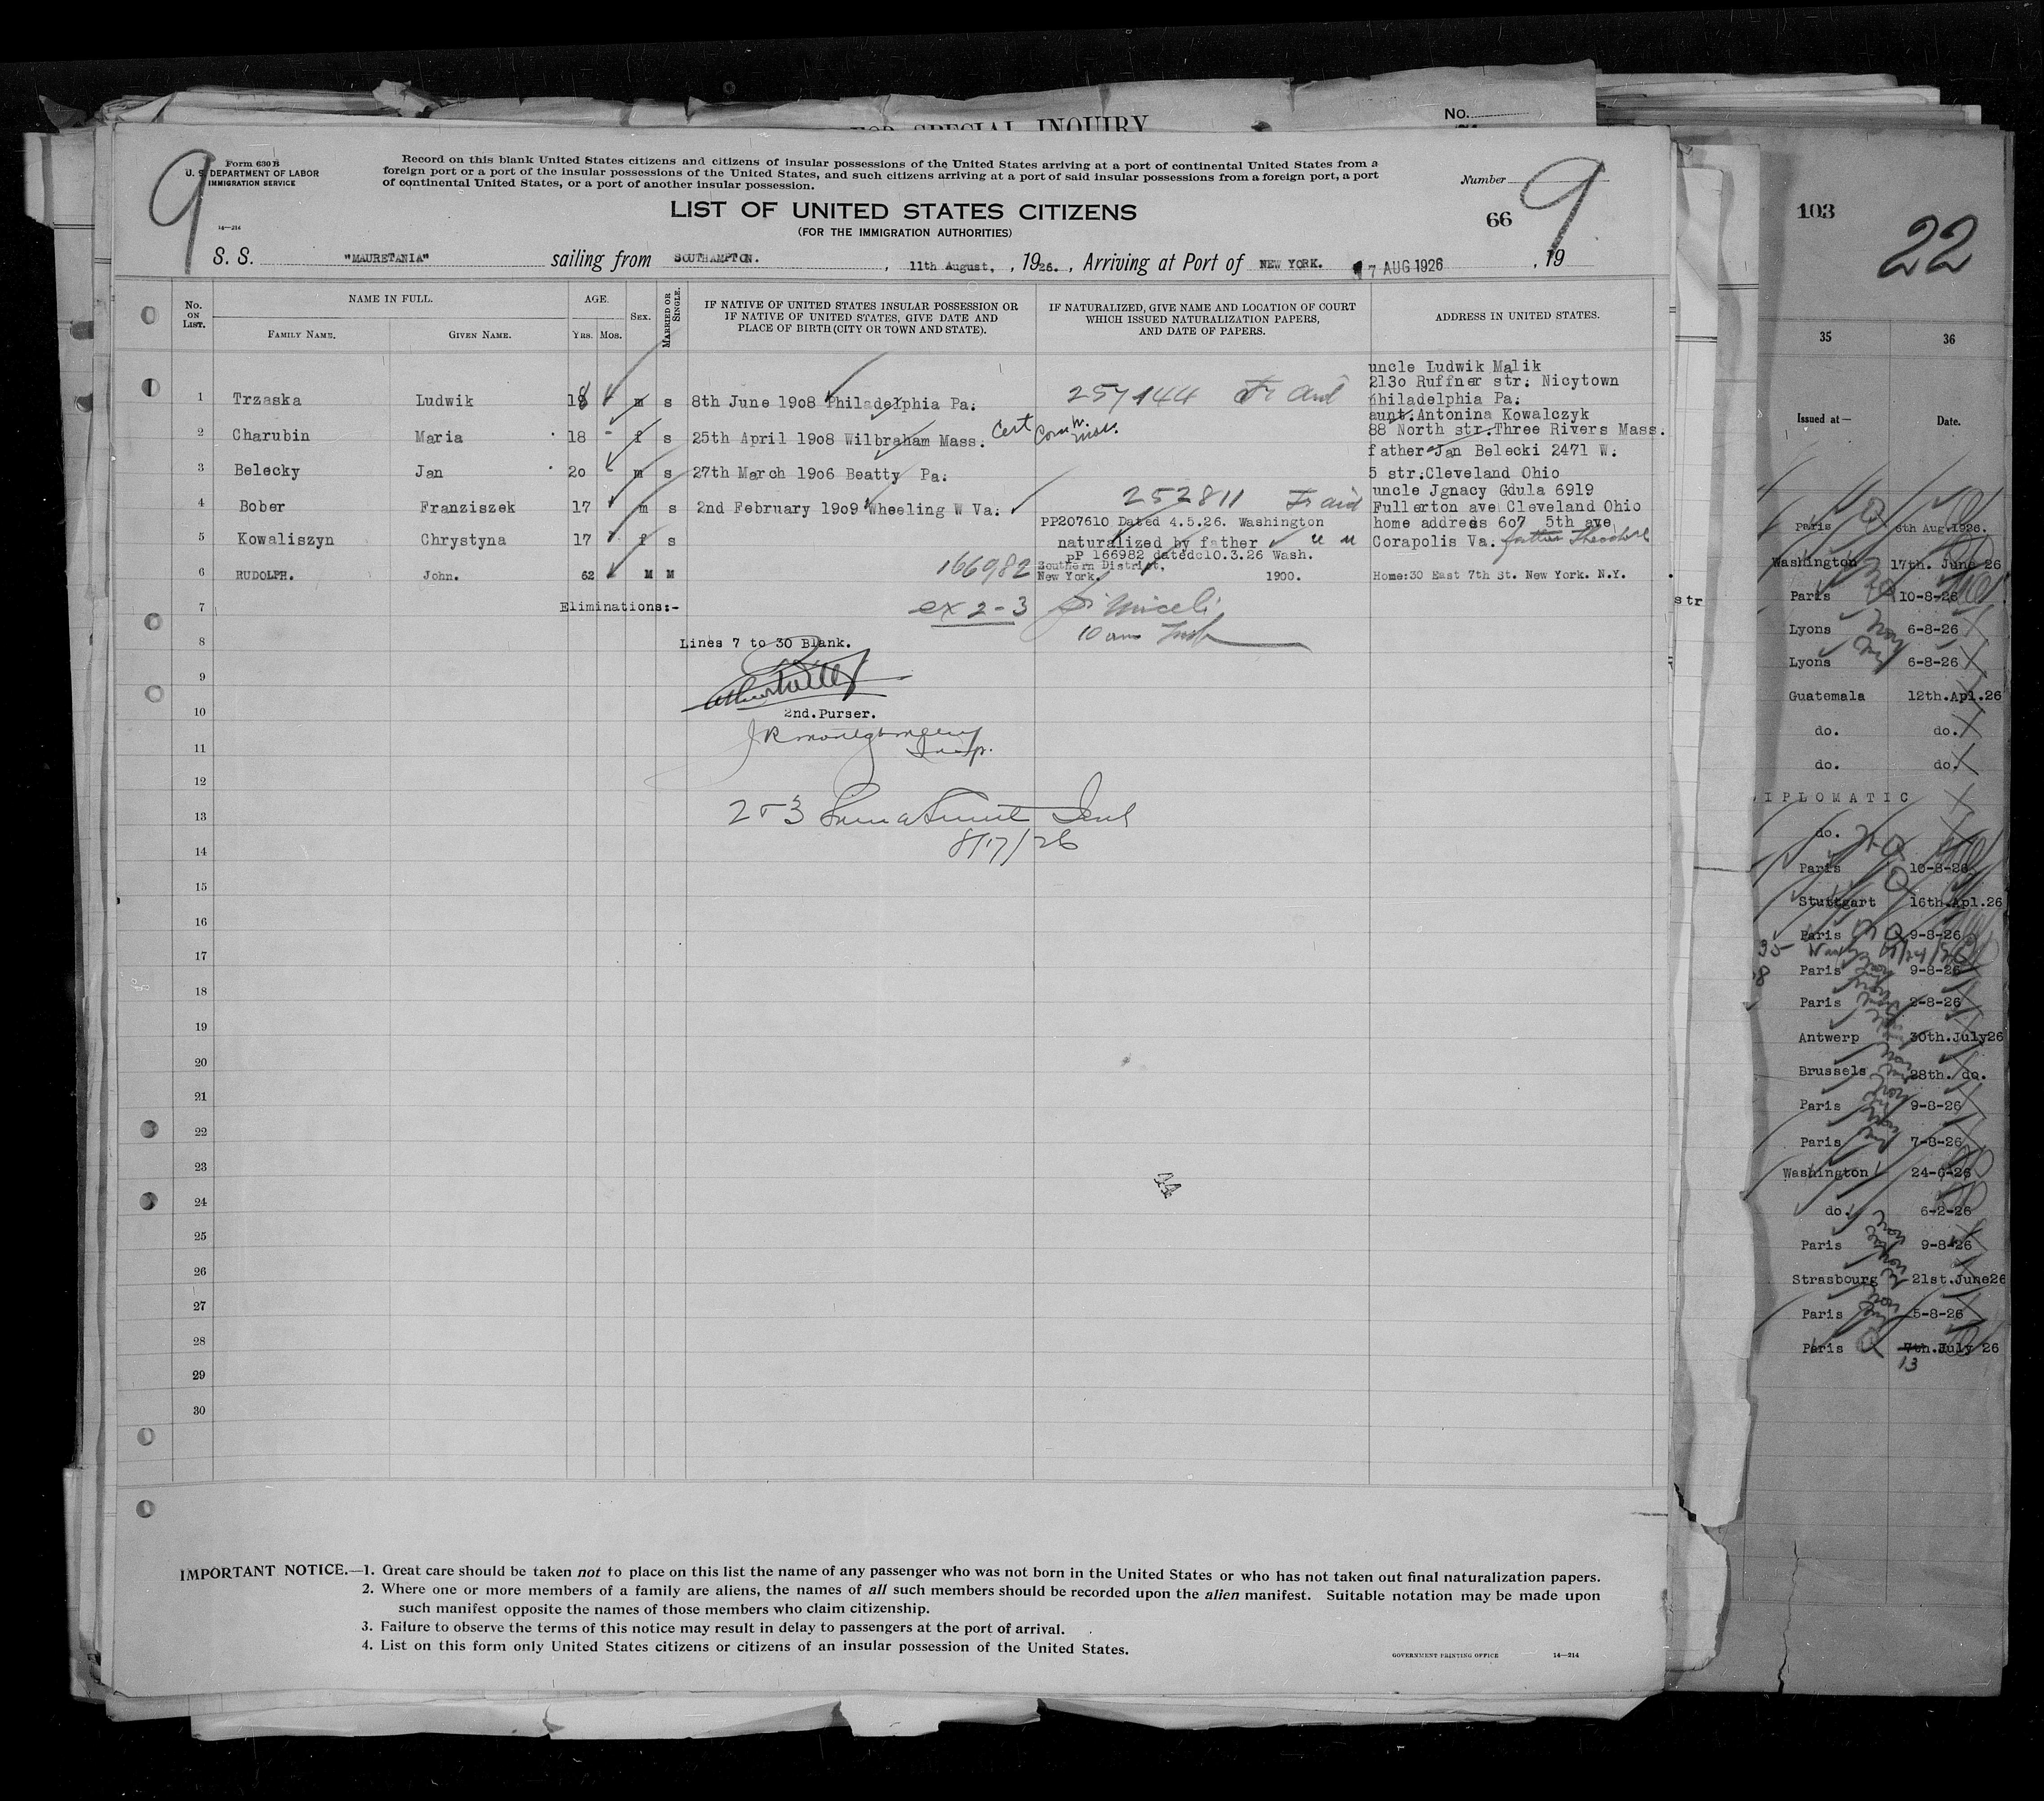 FOR SPECIAL INQUIRY
No.
9
Form 630 B
U. S. DEPARTMENT OF LABOR
IMMIGRATION SERVICE
14—214
Record on this blank United States citizens and citizens of insular possessions of the United States arriving at a port of continental United States from a
foreign port or a port of the insular possessions of the United States, and such citizens arriving at a port of said insular possessions from a foreign port, a port
of continental United States, or a port of another insular possession.
Number 9
LIST OF UNITED STATES CITIZENS
66
(FOR THE IMMIGRATION AUTHORITIES)
S. S. "MAURETANIA" sailing from SOUTHAMPTON. , 11th August, , 1926. , Arriving at Port of NEW YORK. 17 AUG 1926 , 19
No. ON LIST.
NAME IN FULL.
FAMILY NAME. GIVEN NAME.
AGE.
YRS. MOS.
SEX.
MARRIED OR SINGLE.
IF NATIVE OF UNITED STATES INSULAR POSSESSION OR
IF NATIVE OF UNITED STATES, GIVE DATE AND
PLACE OF BIRTH (CITY OR TOWN AND STATE).
IF NATURALIZED, GIVE NAME AND LOCATION OF COURT
WHICH ISSUED NATURALIZATION PAPERS,
AND DATE OF PAPERS.
ADDRESS IN UNITED STATES.
uncle Ludwik Malik
2130 Ruffner str. Nicytown
1 Trzaska Ludwik 18 m s 8th June 1908 Philadelphia Pa. 257144 philadelphia Pa.
aunt.Antonina Kowalczyk
2 Charubin Maria 18 - f s 25th April 1908 Wilbraham Mass. Cert 88 North str.Three Rivers Mass.
father Jan Belecki 2471 W.
3 Belecky Jan 20 m s 27th March 1906 Beatty Pa. 5 str.Cleveland Ohio
uncle Jgnacy Gdula 6919
4 Bober Franziszek 17 m s 2nd February 1909 Wheeling W Va. 252811 Fullerton ave Cleveland Ohio
PP207610 Dated 4.5.26. Washington home address 607 5th ave
5 Kowaliszyn Chrystyna 17 f s naturalized by father Corapolis Va. father Theodore
pP 166982 datedc10.3.26 Wash.
6 RUDOLPH. John. 52 M M 166982 Southern District, New York. 1900. Home:30 East 7th St. New York. N.Y.
7 Eliminations:- ex 2-3
8 Lines 7 to 30 Blank.
9
10 2nd.Purser.
JR Montgomery
11 Insp.
12
13 2 & 3
14 8/17/26
15
16
17
18
19
20
21
22
23
24
25
26
27
28
29
30
IMPORTANT NOTICE.—1. Great care should be taken not to place on this list the name of any passenger who was not born in the United States or who has not taken out final naturalization papers.
2. Where one or more members of a family are aliens, the names of all such members should be recorded upon the alien manifest. Suitable notation may be made upon
such manifest opposite the names of those members who claim citizenship.
3. Failure to observe the terms of this notice may result in delay to passengers at the port of arrival.
4. List on this form only United States citizens or citizens of an insular possession of the United States.
GOVERNMENT PRINTING OFFICE 14—214
str
103
22
35 36
Issued at— Date.
Paris 6th Aug.1926.
Washington 17th. June 26
Paris 10-8-26
Lyons 6-8-26
Lyons 6-8-26
Guatemala 12th.Apl.26
do. do.
do. do.
IPLOMATIC
do.
Paris 10-8-26
Stuttgart 16th.Apl.26
Paris 9-8-26
Paris 9-8-26
Paris 2-8-26
Antwerp 30th.July26
Brussels 28th. do.
Paris 9-8-26
Paris 7-8-26
Washington 24-6-26
do. 6-2-26
Paris 9-8-26
Strasbourg 21st.June26
Paris 5-8-26
Paris 7th.July 26
13